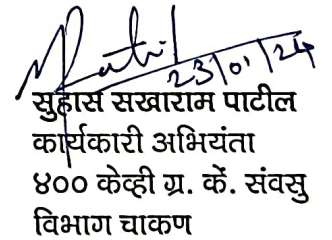 Patil
23/01/24
सुहास सखाराम पाटील
कार्यकारी अभियंता
४०० केव्ही ग्र. कें. संवसु
विभाग चाकण